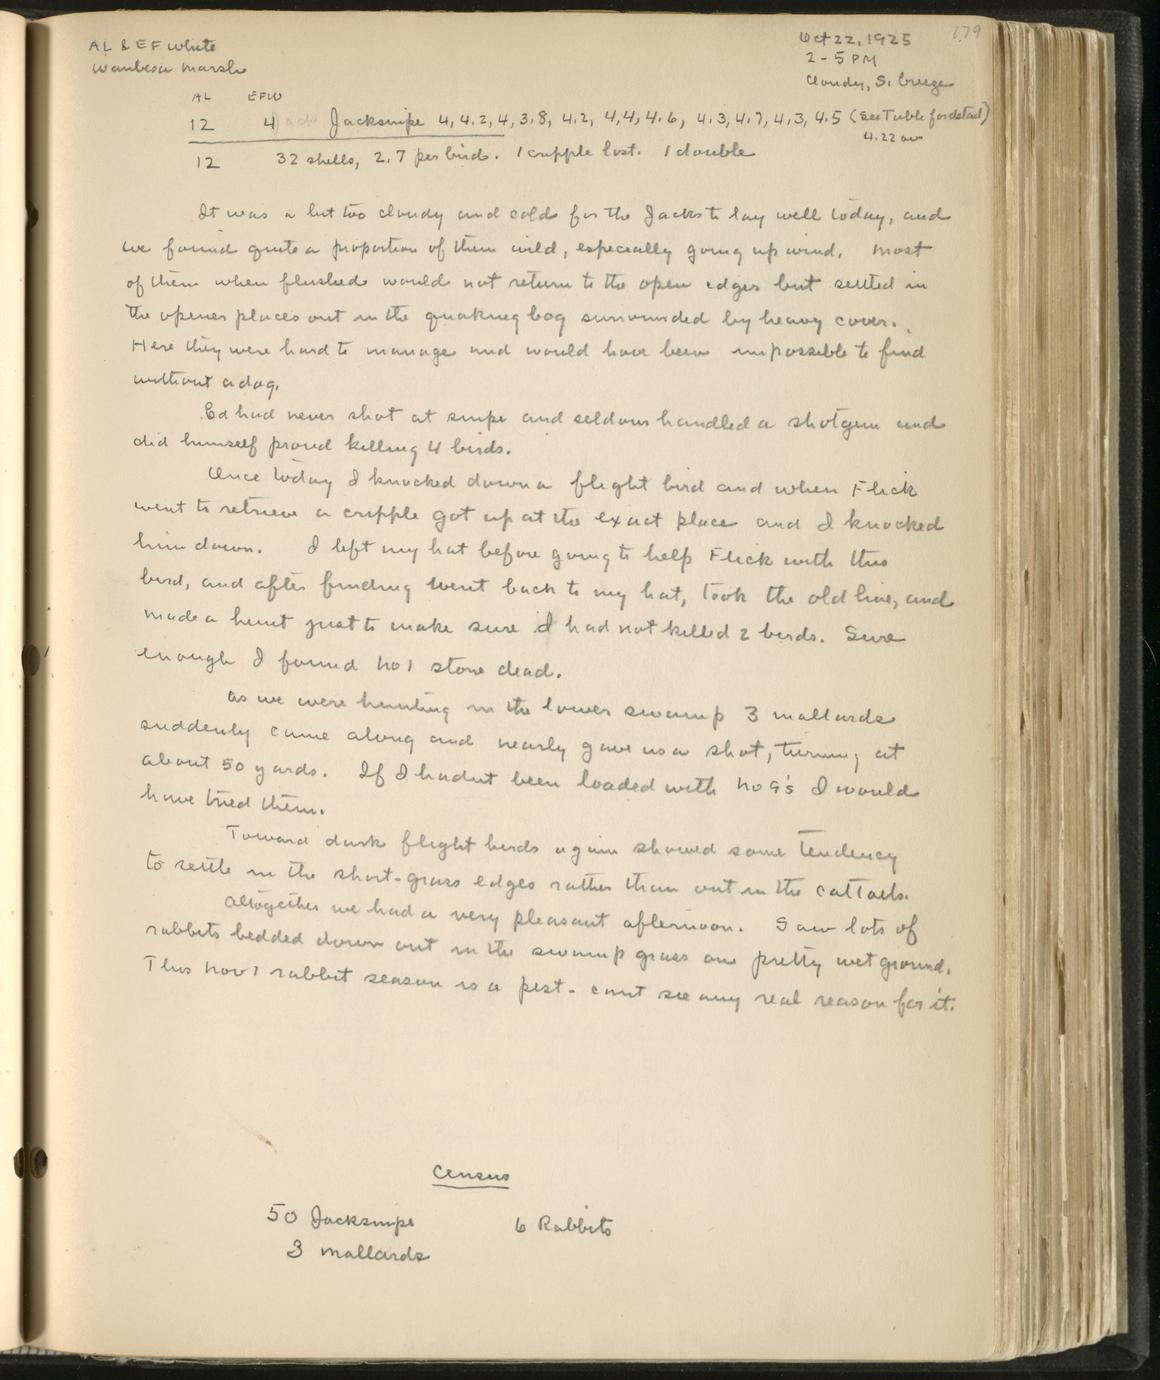 AL & EF White
Waubesa Marsh
Oct 22, 1925
2-5 PM
Cloudy, S. breeze
179
AL EFW
12 4 Jacksnipe 4, 4.2, 4, 3.8, 4.2, 4.4, 4.6, 4.3, 4.7, 4.3, 4.5 (See Table for detail)
4.22 av
12 32 shells, 2.7 per bird. 1 cripple lost. 1 double
It was a bit too cloudy and cold for the Jacks to lay well today, and
we found quite a proportion of them wild, especially going up wind. Most
of them when flushed would not return to the open edges but settled in
the opener places out in the quaking bog surrounded by heavy cover.
Here they were hard to manage and would have been impossible to find
without a dog.
Ed had never shot at snipe and seldom handled a shotgun and
did himself proud killing 4 birds.
Once today I knocked down a flight bird and when Flick
went to retrieve a cripple got up at the exact place and I knocked
him down. I left my hat before going to help Flick with this
bird, and after finding went back to my hat, took the old line, and
made a hunt just to make sure I had not killed 2 birds. Sure
enough I found No 1 stone dead.
As we were hunting in the lower swamp 3 mallards
suddenly came along and nearly gave us a shot, turning at
about 50 yards. If I hadnt been loaded with No 9's I would
have tried them.
Toward dusk flight birds again showed some tendency
to settle in the short-grass edges rather than out in the cattails.
Altogether we had a very pleasant afternoon. Saw lots of
rabbits bedded down out in the swamp grass on pretty wet ground.
This Nov 1 rabbit season is a pest - cant see any real reason for it.
Census
50 Jacksnipe 6 Rabbits
3 mallards